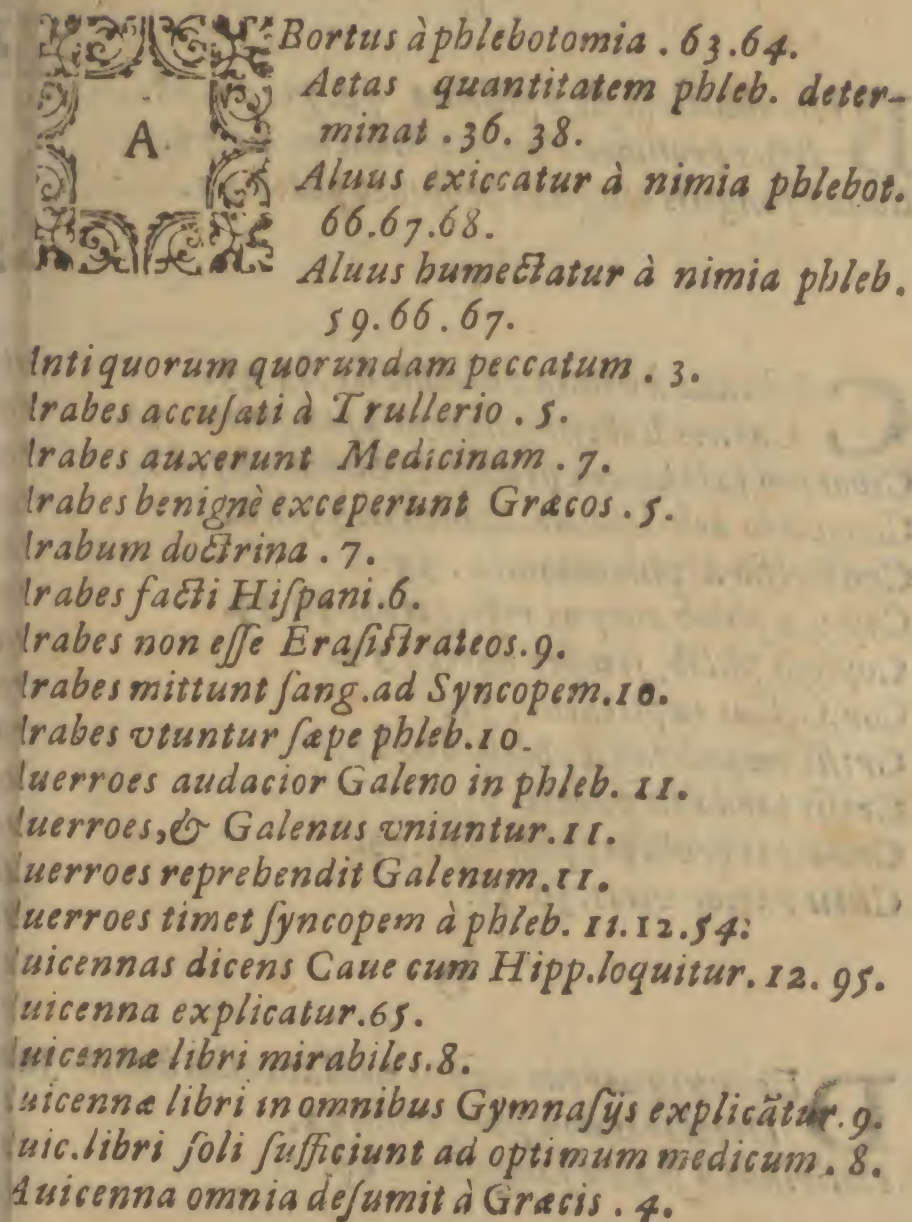 ABortus à phlebotomia . 63.64.
Aetas quantitatem phleb. deter-
minat . 36. 38.
Aluus exiccatur à nimia phlebot.
66.67.68.
Aluus humectatur à nimia phleb.
59.66.67.
Antiquorum quorundam peccatum . 3.
Arabes accuſati à Trullerio . 5.
Arabes auxerunt Medicinam . 7.
Arabes benignè exceperunt Græcos . 5.
Arabum doctrina . 7.
Arabes facti Hiſpani.6.
Arabes non eſſe Eraſiſtrateos.9.
Arabes mittunt ſang.ad Syncopem.10.
Arabes vtuntur ſæpe phleb.10.
Auerroes audacior Galeno in phleb. 11.
Auerroes,& Galenus vniuntur.11.
Auerroes reprehendit Galenum.11.
Auerroes timet ſyncopem à phleb. 11.12.54:
Auicennas dicens Caue cum Hipp.loquitur. 12. 95.
Auicenna explicatur.65.
Auicennæ libri mirabiles.8.
Auicennæ libri in omnibus Gymnaſijs explicãtur.9.
Auic.libri ſoli ſufficiunt ad optimum medicum . 8.
Auicenna omnia deſumit à Græcis . 4.